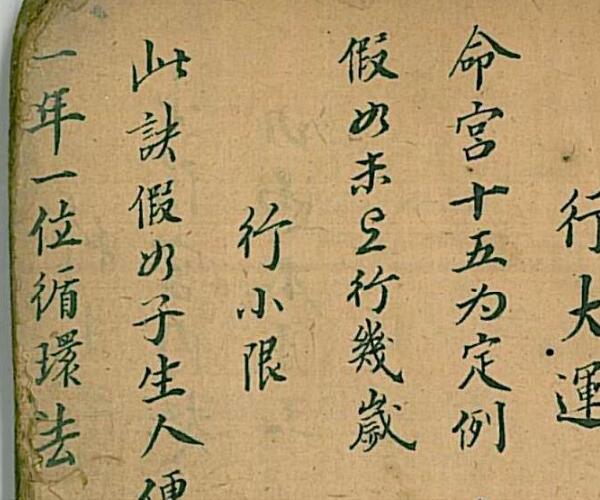 行大運
命宮十五为定例
假如未㠯行幾歲
行小限
此訣假如子生人便
一年一位循環法